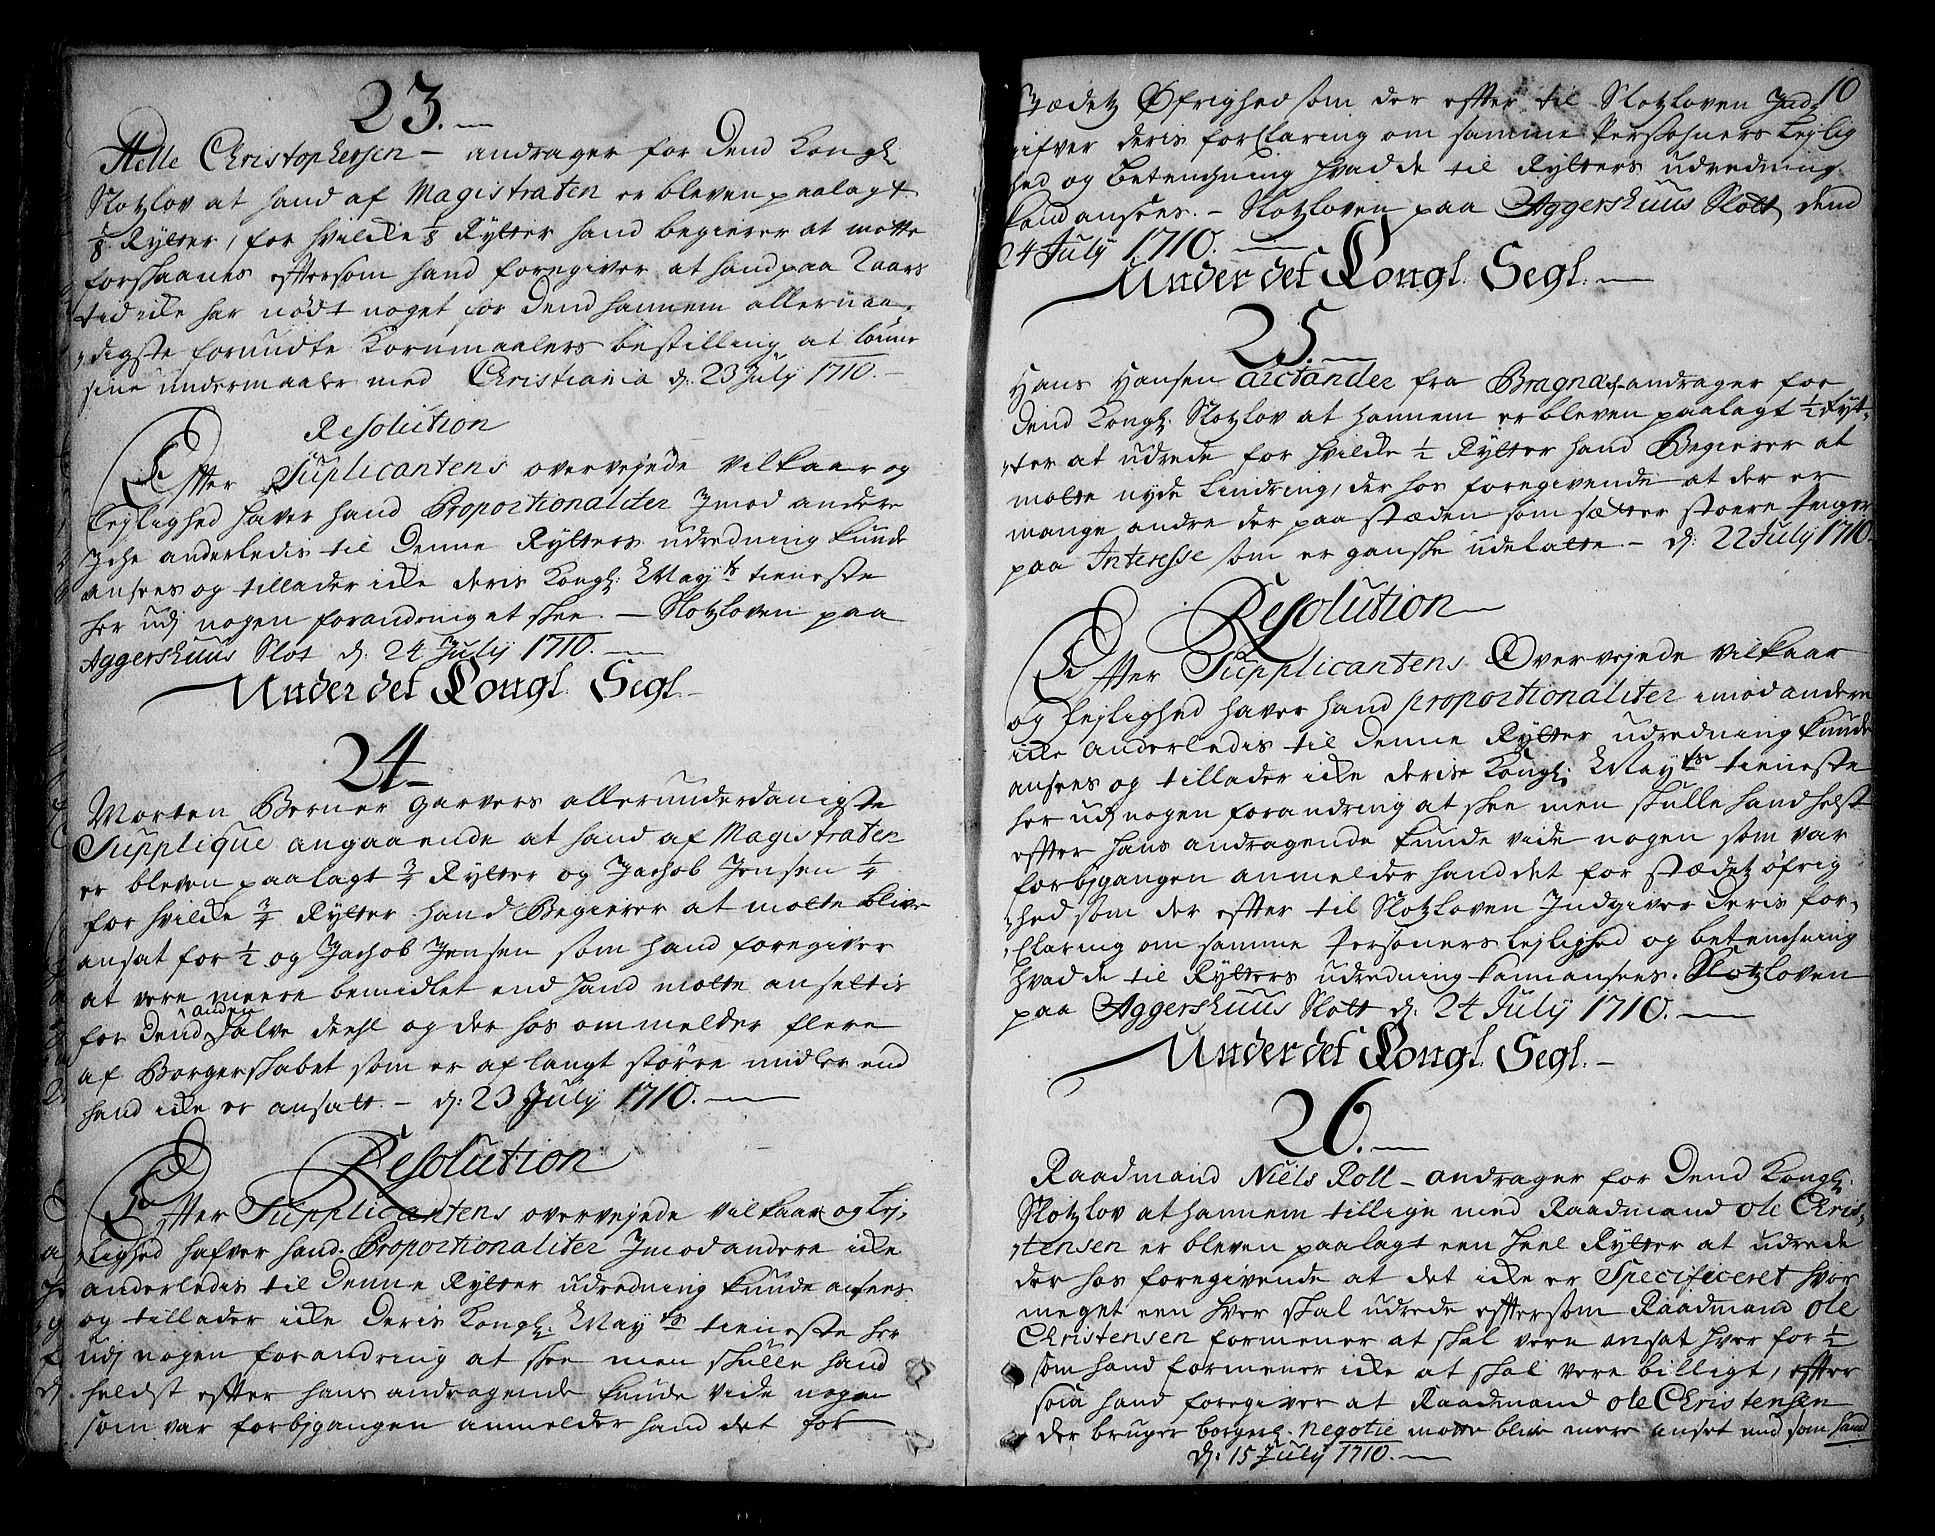 23.
Helle Christophersen – andrager for dend Kongl:
Slotzlov at hand af Magistraten er bleven paalagt
1/8 Rytter, for hvilcke 1/8 Rytter hand begierer at motte
forskaanes eftersom hand foregiver at hand paa Aars
tid icke har nødt noget for dend hannem allernaa,
digste forundte Kornmaalers bestilling at lønne
sine undermaaler med Christiania d: 23 July 1710.
Resolution
Efter Suplicantens overvejede vilkaar og
lejlighed haver hand Proportionaliter Imod andere
Iche anderledis til denne Rytters udredning kunde
ansees og tillader icke deris Kongl: Mayts tieneste
her udj nogen forandring at skee. – Slotzloven paa
Aggershuus Slot d: 24 July 1710.
Under det Kongl. Segl. –
24
Morten Berner garvers allerunderdanigste
Supplique angaaende at hand af Magistraten
er bleven paalagt 3/4 Rytter og Jachob Jensen 1/4
for hvilke 3/4 Rytter hand Begierer at motte blive
ansat for 1/2 og Jachob Jensen som hand foregiver
at vere meere bemidlet end hand motte ansettis
for dend anden halve deehl og der hos ommelder flere
af Borgerskabet som er af langt større midler end
hand icke er ansatt. – d: 23 July 1710.
Resolution
Efter Supplicantens overvejede vilkaar og lej,
lighed hafver hand Proportionaliter Imod andere icke
anderledis til denne Rytter udredning kunde ansees
og tillader icke deris Kongl: Mayts tieneste her
udj nogen forandring at skee men skulle hand
heldst efter hans andragende kunde vide nogen
som var forbjgangen anmelder hand det for
10
Stædetz Øfrighed som der efter til Slotzloven Ind,
gifver deris forClaring om samme Persohners lejlig
hed og betenchning hvad de til Rytters udredning
kand ansees. – Slotzloven paa Aggershuus Slott dend
24 July 1710.
Under det Kongl. Segl. –
25.
Hans Hansen arctander fra Bragnæs andrager for
dend Kongl: Slotzlov at hannem er bleven paalagt 1/2 Ryt,
ter at udrede for hvilcke 1/2 Rytter hand Begierer at
motte nyde Lindring, der hos foregivende at der er
mange andre der paa stæden som sætter stoere penger
paa Interesse som er ganske udelatte – d: 22 July 1710.
Resolution
Efter Supplicantens Overvejede vilkaar
og lejlighed haver hand proportionaliter imod andere
icke anderledis til denne Rytter udredning kunde
ansees og tillader icke deris Kongl: Mayts tieneste
her udj nogen forandring at skee men skulle hand helst
efter hans andragende kunde vide nogen som var
forbjgangen anmelder hand det for stædetz øfrig
hed som der efter til Slotzloven Indgiver deris for,
Claring om samme Personers lejlighed og betenchning
hvad de til Rytters udredning kann ansees. Slotzloven
paa Aggershuus Slott d: 24 July 1710.
Under det Kongl. Segl. –
26.
Raadmand Niels Roll – andrager for dend Kongl:
Slotzlov at hannem tillige med Raadmand ole Chris,
tensen er bleven paalagt een heel Rytter at udrede
der hos foregivende at det icke er Specificeret hvor
meget een hver skal udrede eftersom Raadmand ole
Christensen formener at skal vere ansat hver for 1/2
som hand formener icke at skal vere billigt, efter
som hand foregiver at Raadmand ole Christensen
der bruger borgerl. negotie motte blive mere anset end som hand
d: 15 July 1710.